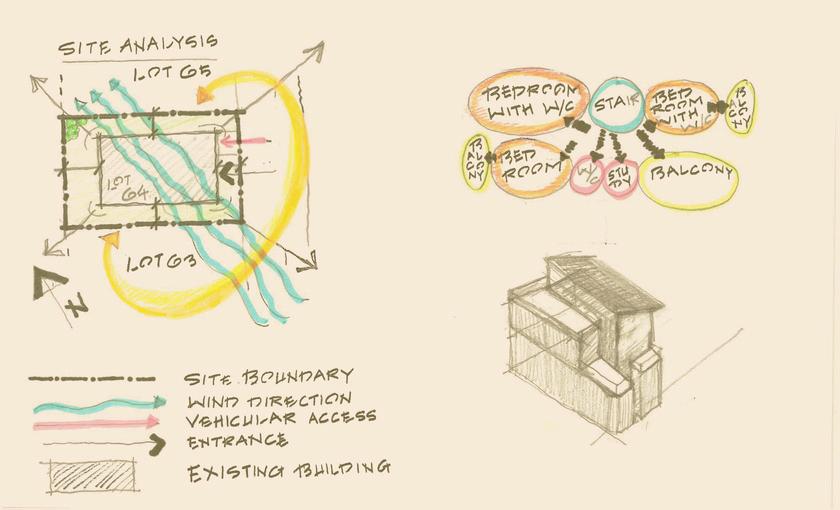 SITE ANALYSIS
LOT 65
LOT 64
LOT 63
N
SITE BOUNDARY
WIND DIRECTION
VEHICULAR ACCESS
ENTRANCE
EXISTING BUILDING
BEDROOM
WITH W/C
STAIR
BED
ROOM
WITH W/C
BALCONY
BALCONY
BED
ROOM
W/C
STU
DY
BALCONY